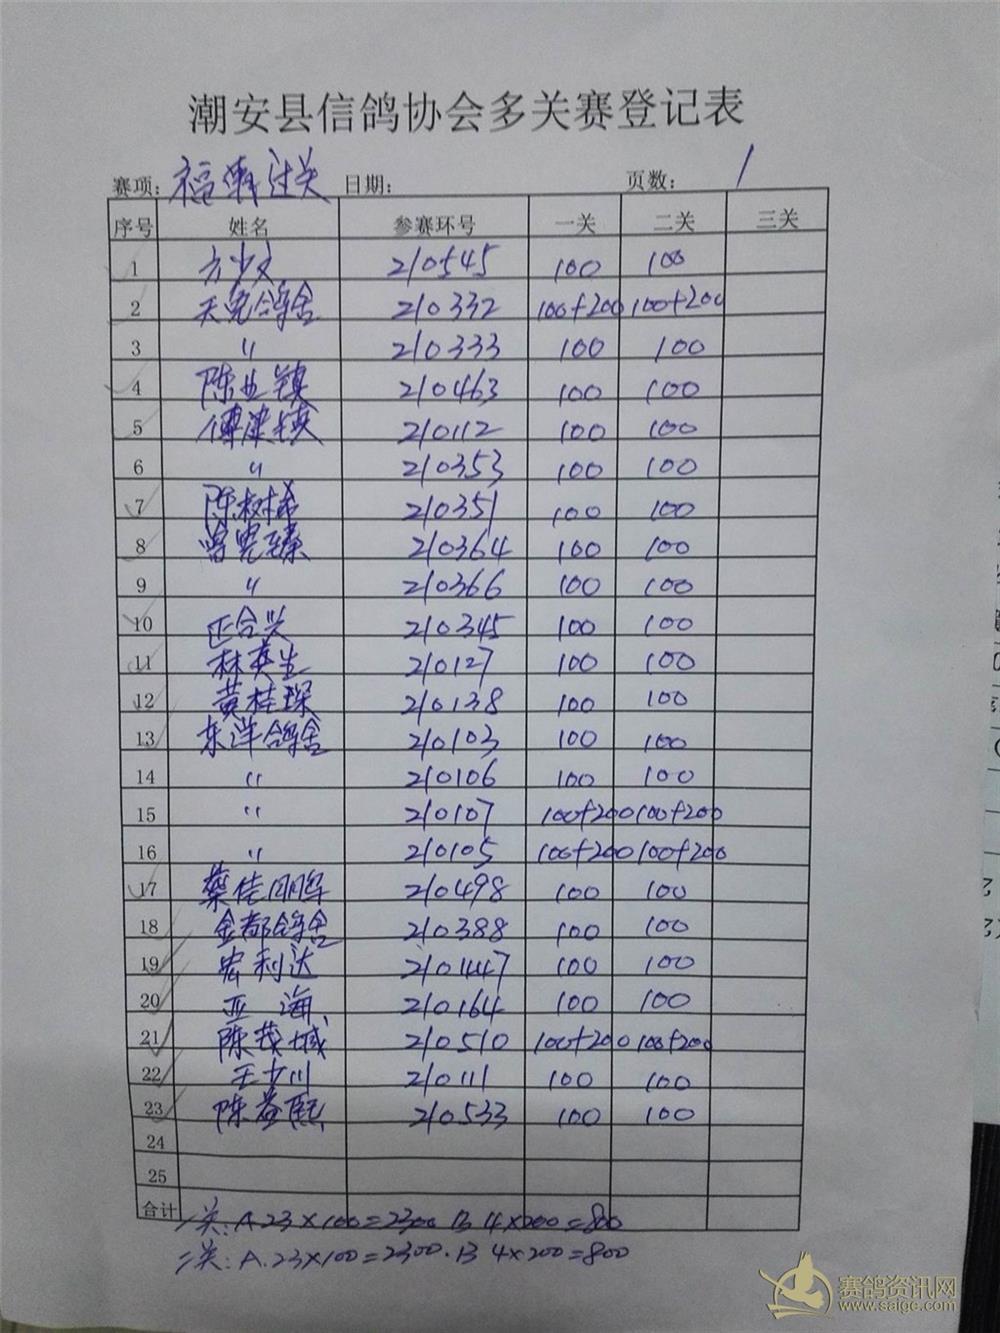 潮安县信鸽协会多关赛登记表
赛项: 福 过关 日期: 页数: 1
序号 姓名 参赛环号 一关 二关 三关
1 方少文 210545 100 100
2 天宪鸽舍 210332 100+200 100+200
3 〃 210333 100 100
4 陈业镇 210463 100 100
5 傅建 210112 100 100
6 〃 210353 100 100
7 陈树 210351 100 100
8 曾宪臻 210364 100 100
9 〃 210366 100 100
10 正合兴 210345 100 100
11 林英生 210127 100 100
12 黄桂琛 210138 100 100
13 东洋鸽舍 210103 100 100
14 〃 210106 100 100
15 〃 210107 100+200 100+200
16 〃 210105 100+200 100+200
17 蔡佳 210498 100 100
18 金都鸽舍 210388 100 100
19 宏利达 2101447 100 100
20 亚海 210164 100 100
21 陈茂城 210510 100+200 100+200
22 王少川 210111 100 100
23 陈益熙 210533 100 100
24
25
合计 一关: A.23×100=2300 B 4×200=800
二关: A.23×100=2300.B 4×200=800
赛鸽资讯网
www.saige.com